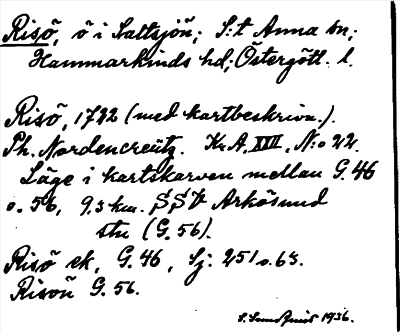 Risö, ö i Saltsjön; S:t Anna sn;
Hammarkinds hd; Östergötl. l.
Risö, 1722 (med kartbeskrivn.).
Ph. Nordencreütz. Kr.A. XXII, N:o 22.
Läge i kartskarven mellan G. 46
o. 56, 9.3 km. SSV Arkösund
stn (G. 56).
Risö ek, G. 46, Sj: 251 o. 63.
Risön G. 56.
1936.